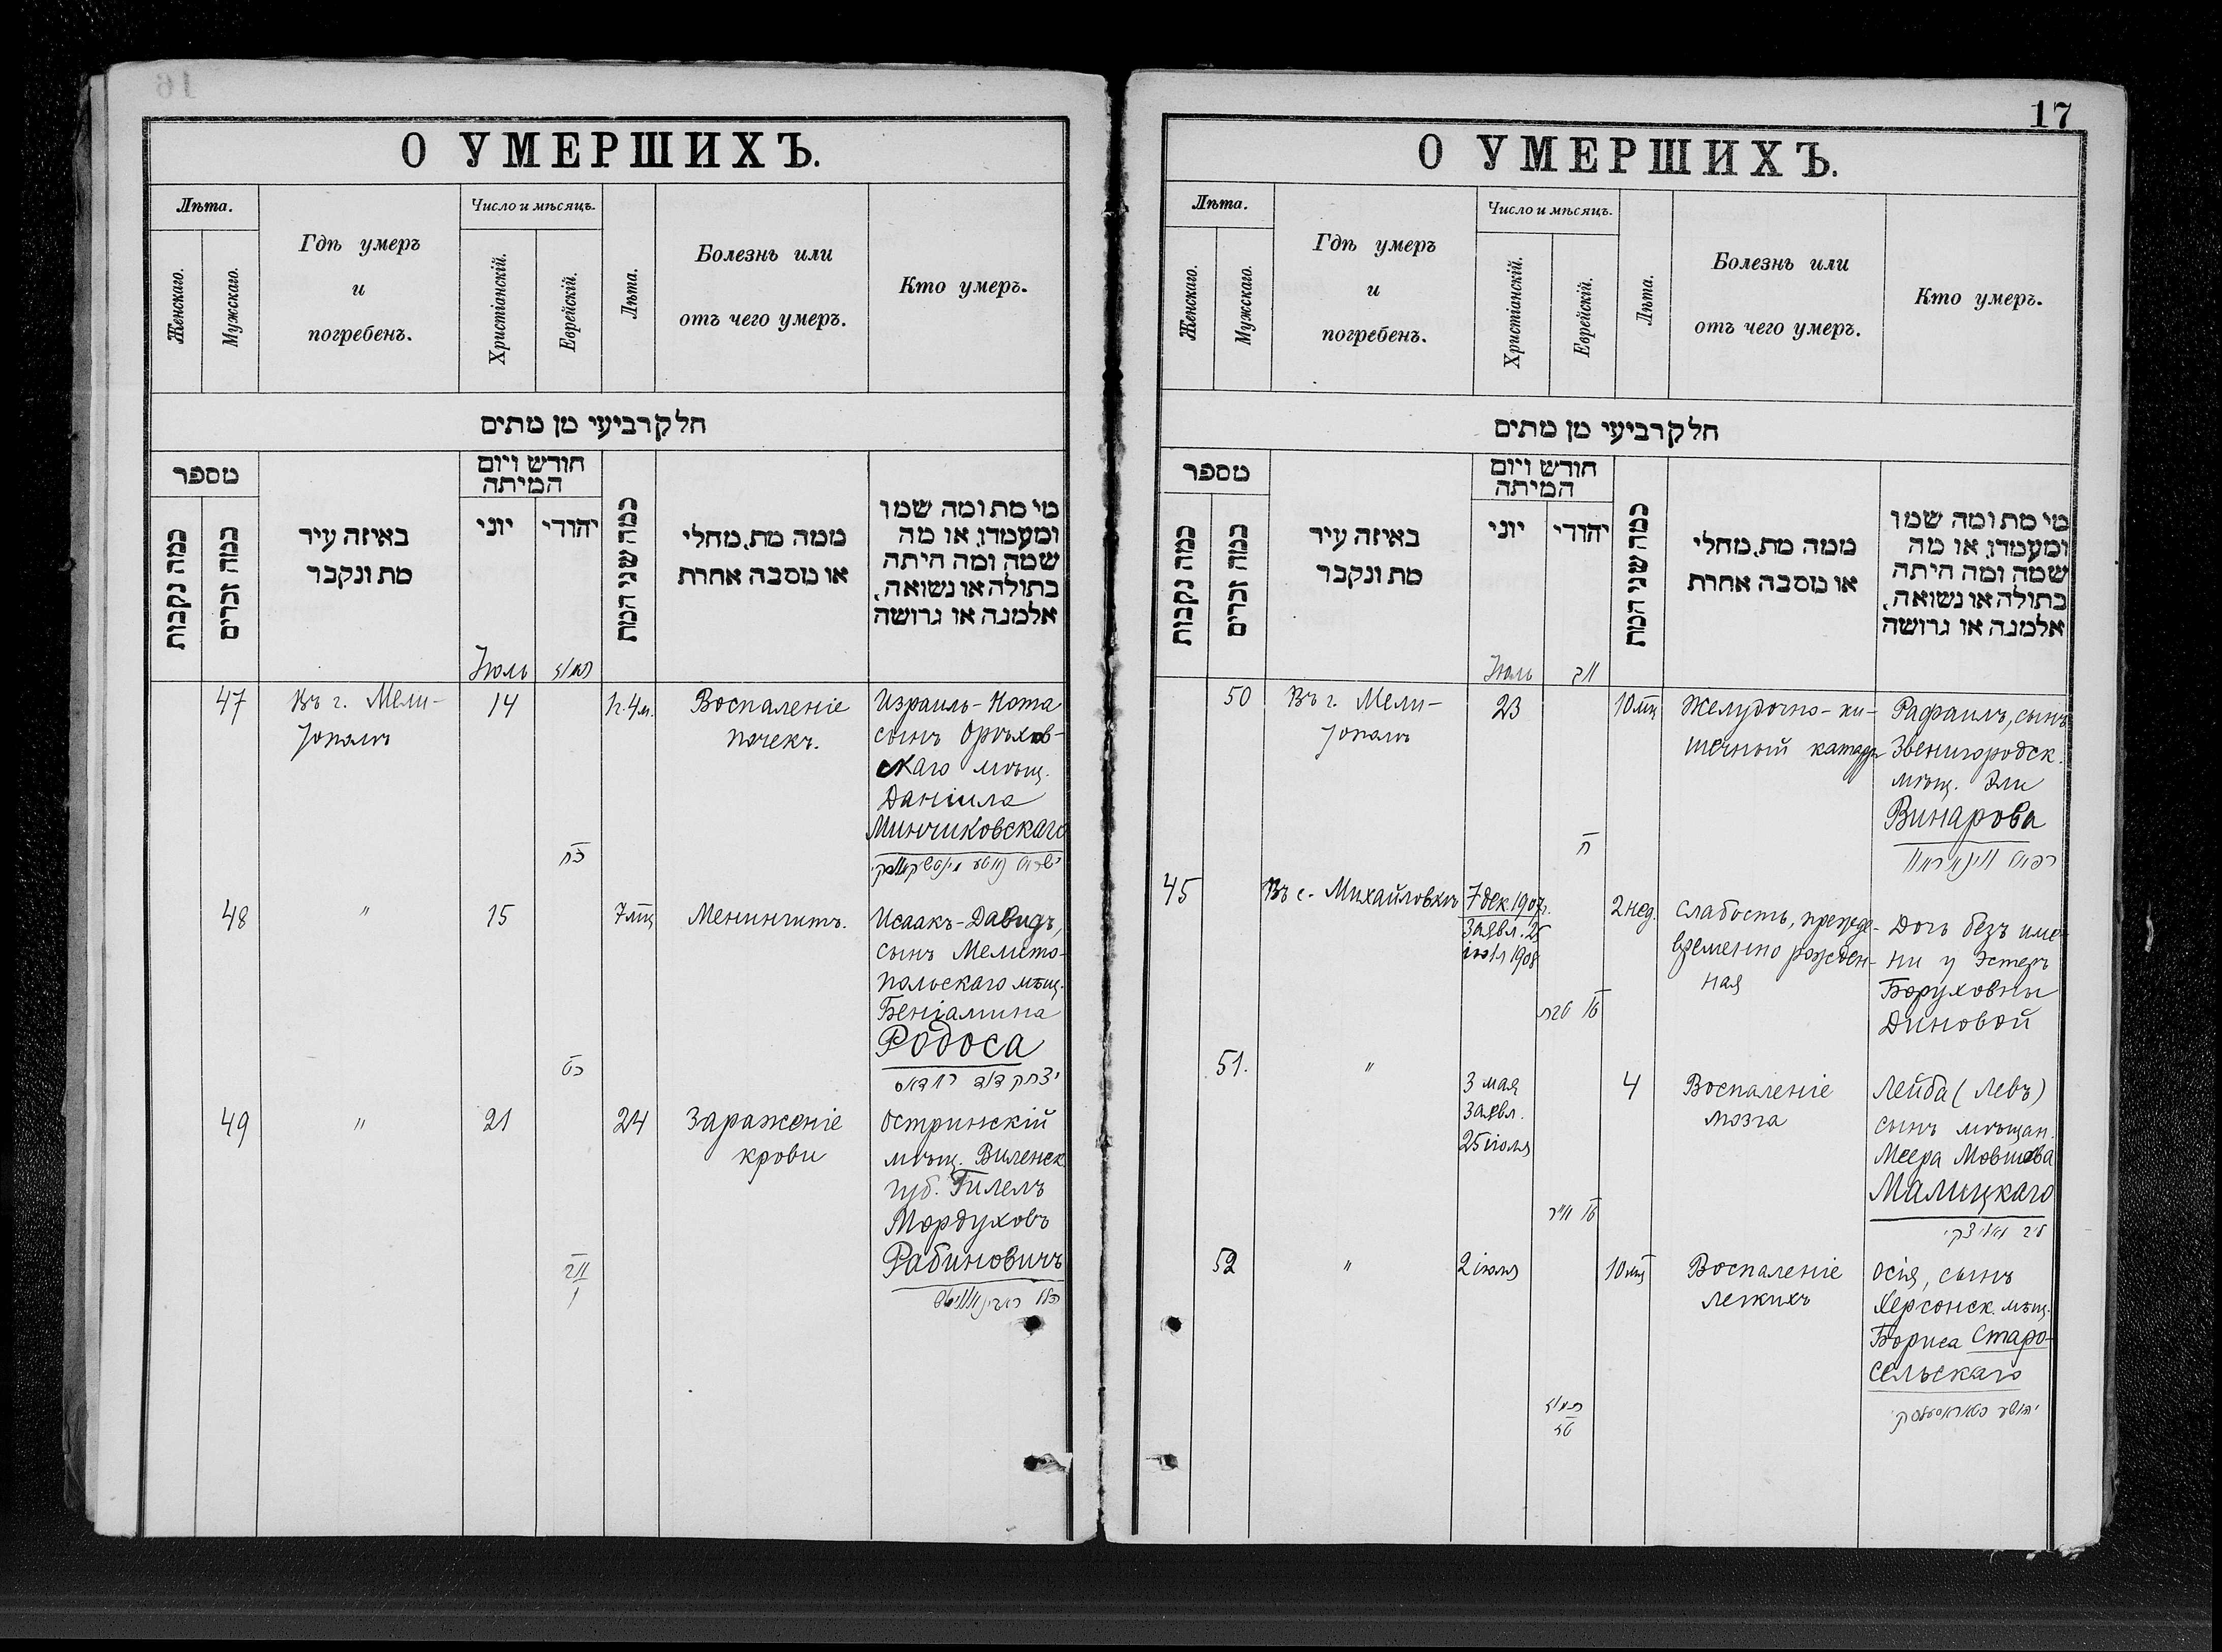 16
О УМЕРШИХЪ.
Лѣта.
Женскаго.
Мужскаго.
Гдѣ умеръ
и
погребенъ.
Число и мѣсяцъ.
Христіанскій.
Еврейскій.
Лѣта.
Болезнь или
отъ чего умеръ.
Кто умеръ.
חלק רביעי מן מתים
מספר
כמה נקבות
כמה זכרים
באיזה עיר
מת ונקבר
חודש ויום
המיתה
יוני
יהודי
כמה שני המת
ממה מת, מחלי
או מסבה אחרת
מי מת ומה שמו
ומעמדו, או מה
שמה ומה היתה
בתולה או נשואה,
אלמנה או גרושה
Іюль
תמוז
47
Въ г. Мели-
тополѣ
14
כח
1г.4м.
Воспаленіе
почекъ.
Израиль-Нота
сынъ Орѣхов-
скаго мѣщ.
Даніила
Минчиковскаго
48
"
15
כט
7мц
Менингитъ.
Исаакъ-Давидъ,
сынъ Мелито-
польскаго мѣщ.
Беніамина
Родоса
יצחק דוד ראדאס
49
"
21
24
Зараженіе
крови
Остринскій
мѣщ. Виленск.
губ. Гилелъ
Мордуховъ
Рабиновичъ
הלל ראבינאוויטש
17
О УМЕРШИХЪ.
Лѣта.
Женскаго.
Мужскаго.
Гдѣ умеръ
и
погребенъ.
Число и мѣсяцъ.
Христіанскій.
Еврейскій.
Лѣта.
Болезнь или
отъ чего умеръ.
Кто умеръ.
חלק רביעי מן מתים
מספר
כמה נקבות
כמה זכרים
באיזה עיר
מת ונקבר
חודש ויום
המיתה
יוני
יהודי
כמה שני המת
ממה מת, מחלי
או מסבה אחרת
מי מת ומה שמו
ומעמדו, או מה
שמה ומה היתה
בתולה או נשואה,
אלמנה או גרושה
Іюль
אב
50
Въ г. Мели-
тополѣ
23
ח
10мц
Желудочно-ки-
шечный катарръ
Рафаилъ, сынъ
Звенигородск.
мѣщ. Эли
Винарова
רפאל ווינאראוו
45
Въ с. Михайловкѣ
7 дек. 1907г.
Заявл. 25
іюля 1908
טבת
2 нед.
Слабость, прежде-
временно рожден-
ная
Дочь безъ име-
ни у Эстеръ
Боруховны
Диновой
51.
"
3 мая
Заявл.
25 іюля
4
Воспаленіе
мозга
Лейба (Левъ)
сынъ мѣщан.
Меера Мовшова
Малицкаго
ליב מאליצקי
52
"
2 іюля
תמוז
10мц
Воспаленіе
легкихъ
Осія, сынъ
Херсонск. мѣщ.
Бориса Старо-
сельскаго
יהושע סטאראסעלסקי